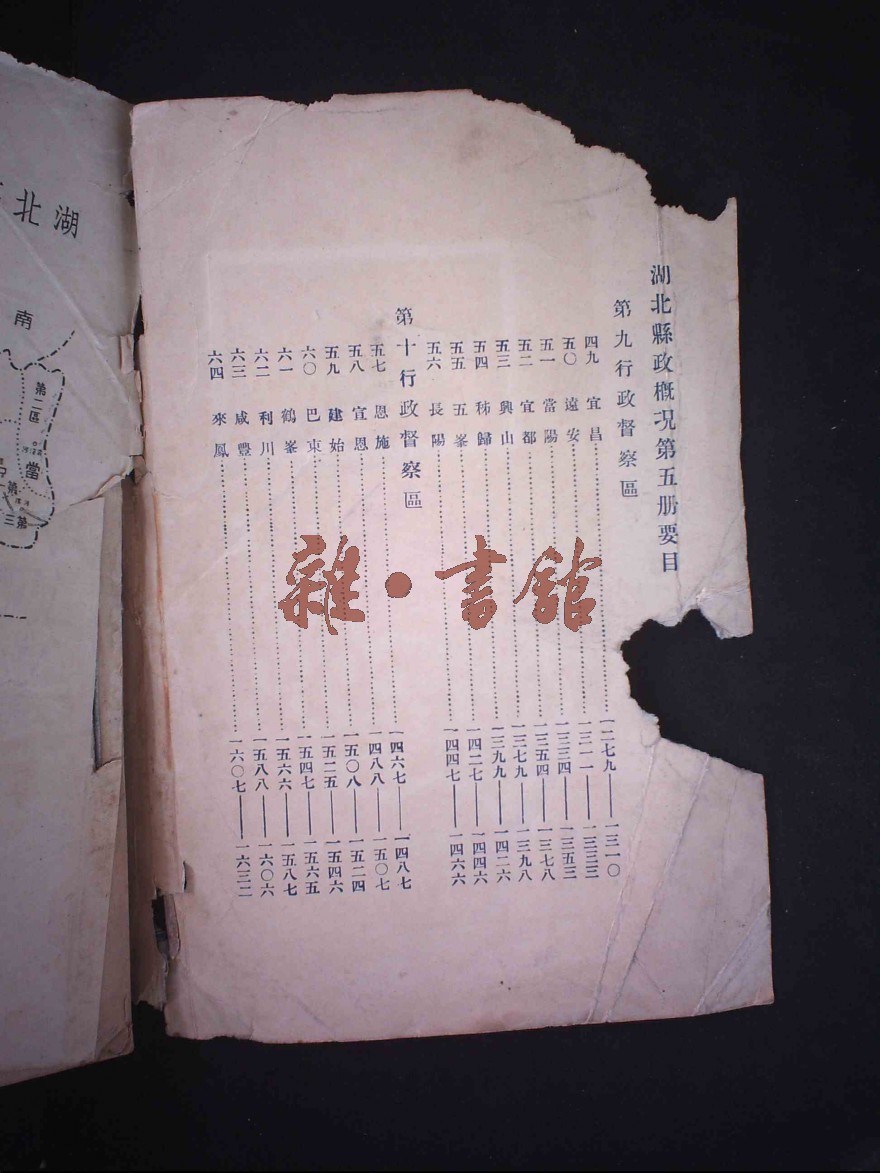 湖北縣政概況第五册要目
第九行政督察區
四九 宜昌……一二七九——一三一〇
五〇 遠安……一三一一——一三三三
五一 當陽……一三三四——一三五三
五二 宜都……一三五四——一三七八
五三 興山……一三七九——一三九八
五四 秭歸……一三九九——一四二六
五五 五峯……一四二七——一四四六
五六 長陽……一四四七——一四六六
第十行政督察區
五七 恩施……一四六七——一四八七
五八 宣恩……一四八八——一五〇七
五九 建始……一五〇八——一五二四
六〇 巴東……一五二五——一五四六
六一 鶴峯……一五四七——一五六五
六二 利川……一五六六——一五八七
六三 咸豐……一五八八——一六〇六
六四 來鳳……一六〇七——一六三二
雜·書館
湖北
南
第二區
當
第一
第三